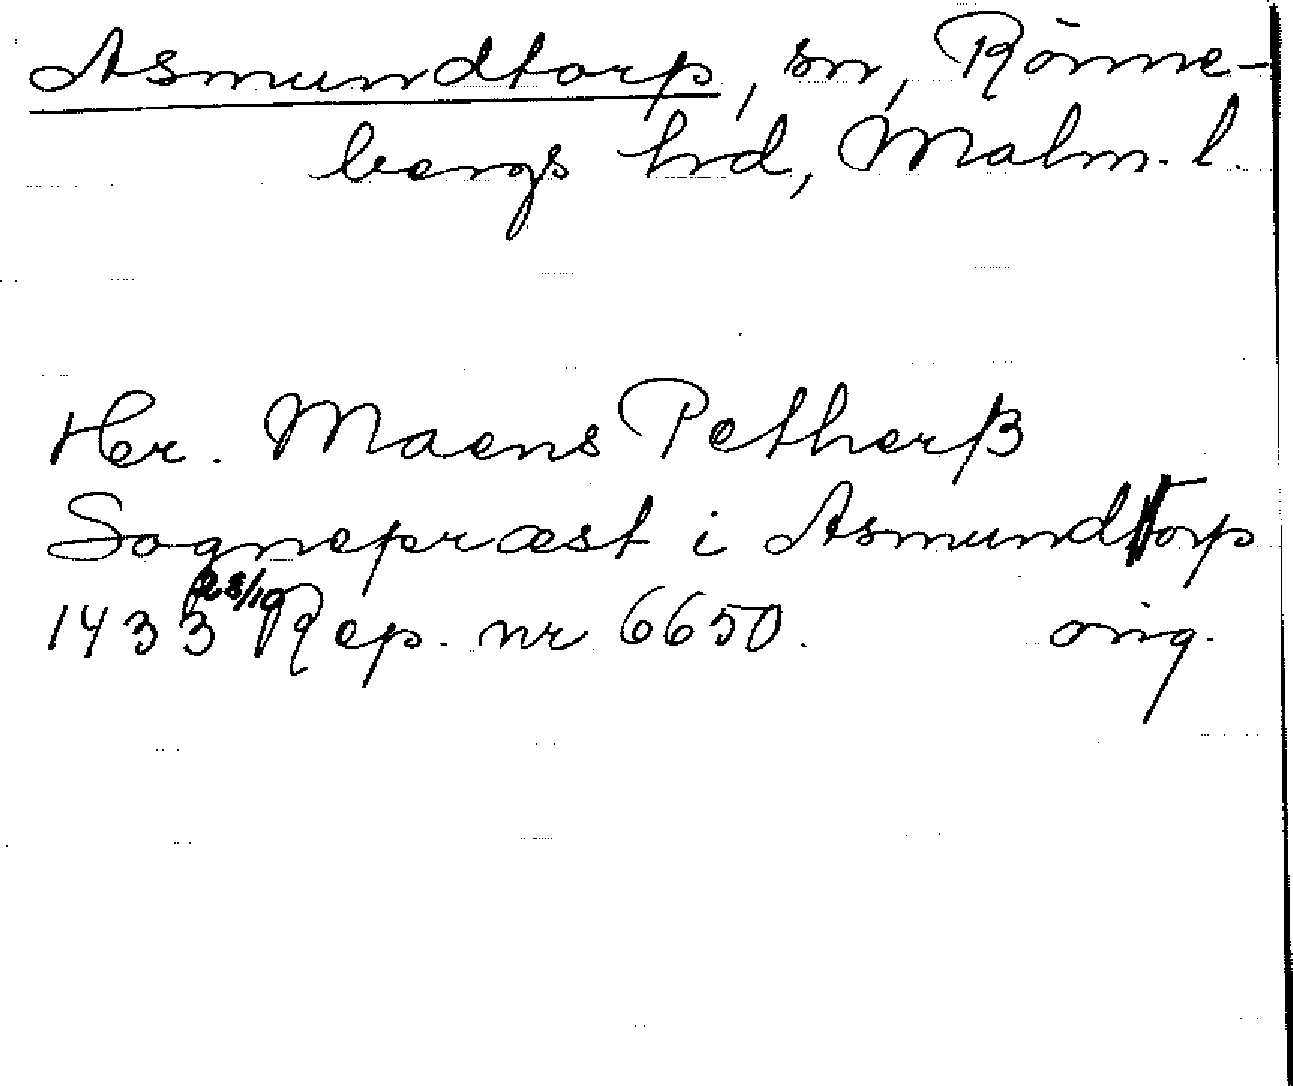 Asmundtorp, sn, Rönne-
bergs hrd, Malm. l.
Her. Maens Petherß
Sognepræst i Asmundtorp
1433 28/10 Rep. nr 6650. orig.